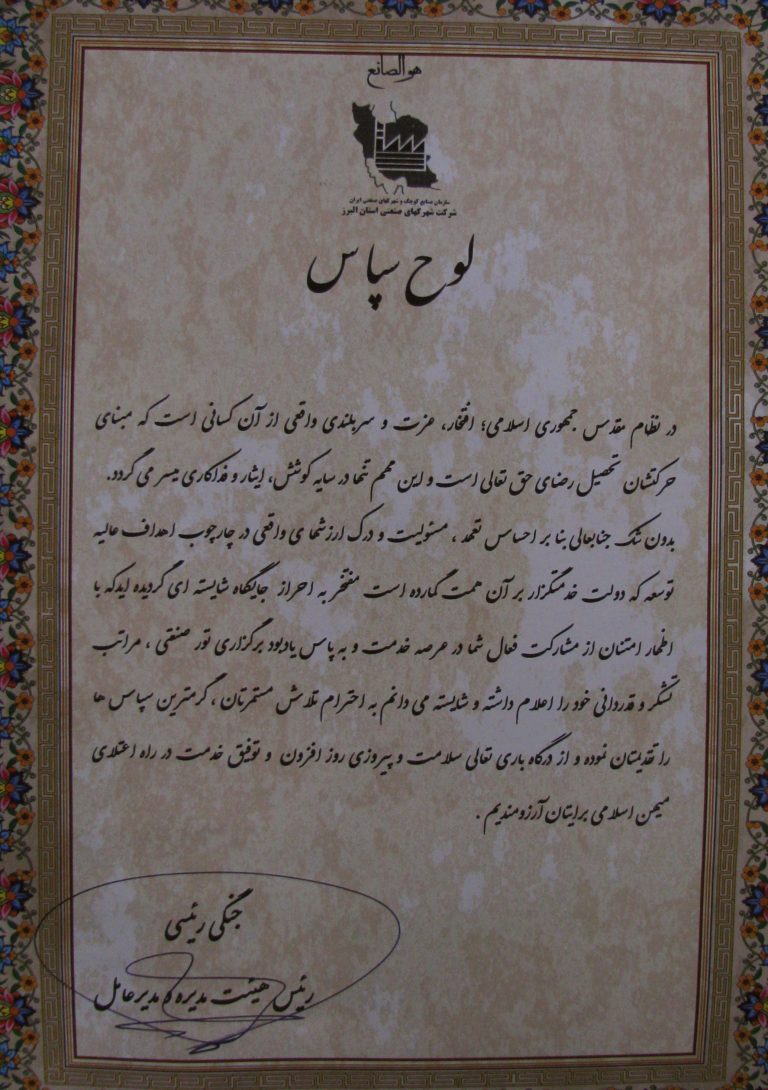 هوالصانع
سازمان صنایع کوچک و شهرکهای صنعتی ایران
شرکت شهرکهای صنعتی استان البرز
لوح سپاس
در نظام مقدس جمهوری اسلامی؛ افتخار، عزت و سربلندی واقعی از آن کسانی است که مبنای
حرکتشان تحصیل رضای حق تعالی است و این مهم تنها در سایه کوشش، ایثار و فداکاری میسر می گردد.
بدون شک جنابعالی بنا بر احساس تعهد ، مسئولیت و درک ارزشهای واقعی در چارچوب اهداف عالیه
توسعه که دولت خدمتگزار بر آن همت گمارده است مفتخر به احراز جایگاه شایسته ای گردیده ایدکه با
اظهار امتنان از مشارکت فعال شما در عرصه خدمت و به پاس یادبود برگزاری تور صنعتی ، مراتب
تشکر و قدردانی خود را اعلام داشته و شایسته می دانم به احترام تلاش مستمرتان ، گرمترین سپاس ها
را تقدیمتان نموده و از درگاه باری تعالی سلامت و پیروزی روز افزون و توفیق خدمت در راه اعتلای
میهن اسلامی برایتان آرزومندیم .
جنگی رئیسی
رئیس هیئت مدیره و مدیرعامل